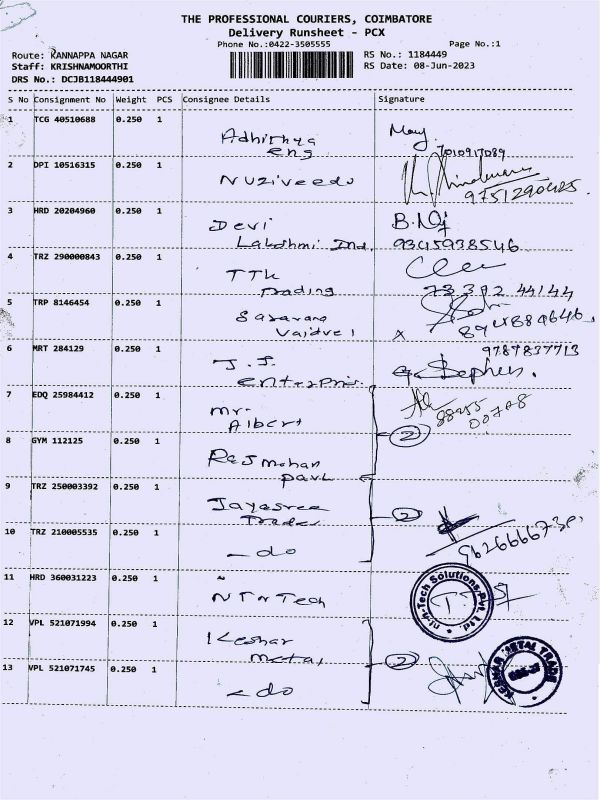 THE PROFESSIONAL COURIERS, COIMBATORE
Delivery Runsheet - PCX
Phone No.:0422-3505555 Page No.:1
Route: KANNAPPA NAGAR RS No.: 1184449
Staff: KRISHNAMOORTHI RS Date: 08-Jun-2023
DRS No.: DCJB118444901
S No Consignment No Weight PCS Consignee Details Signature
1 TCG 40510688 0.250 1 Adhithya May
eng 7010917089
2 DPI 10516315 0.250 1 Nuziveedu
9751290425
3 HRD 20204960 0.250 1 Devi
Lakshmi Ind. 9345938546
4 TRZ 290000843 0.250 1 TTK
Trading 73392 44144
5 TRP 8146454 0.250 1 Saravana
Vaidvel x
6 MRT 284129 0.250 1 J.J. 9789837713
enterpris. Stephen.
7 EDQ 25984412 0.250 1 Mr.
Albert 2
8 GYM 112125 0.250 1 Rajmohan
Paul
9 TRZ 250003392 0.250 1 Jayasree
Trader 2
10 TRZ 210005535 0.250 1 - do
11 HRD 360031223 0.250 1 NTrTech
Tech Solutions Pvt. Ltd.
12 VPL 521071994 0.250 1 Keshar
Metal 2
13 VPL 521071745 0.250 1 - do
KESHAR METAL TRADE